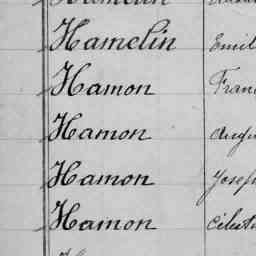 Hamelin Emil
Hamon Fran
Hamon Augu
Hamon Josep
Hamon Célest